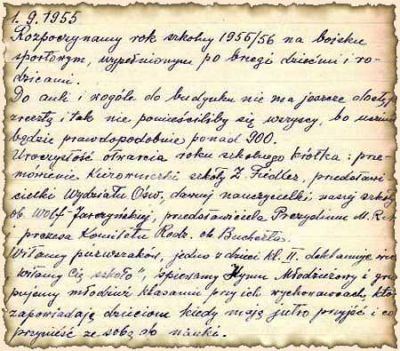 1. 9. 1955
Rozpoczynamy rok szkolny 1955/56 na boisku
sportowym, wypełnionym po brzegi dziećmi i ro-
dzicami.
Do auli i wogóle do budynku nie ma jeszcze dostępu
zresztą i tak nie pomieściliby się wszyscy, bo uczni
będzie prawdopodobnie ponad 900.
Uroczystość otwarcia roku szkolnego krótka: prze-
mówienie kierowniczki szkoły Z. Fiedler, przedstawi
cielki Wydziału Ośw., dawnej nauczycielki naszej szkoły
ob. Wolf-Jarczyńskiej, przedstawiciela Prezydium M. R.
prezesa Komitetu Rodz. ob.
Witamy pierwszaków, jedno z dzieci kl. II. deklamuje
witamy Cię szkoło", śpiewamy Hymn Młodzieży i
pujemy młodzież klasami przy ich wychowawcach,
zapowiadają dzieciom kiedy mają jutro przyjść i co
przynieść ze sobą do nauki.